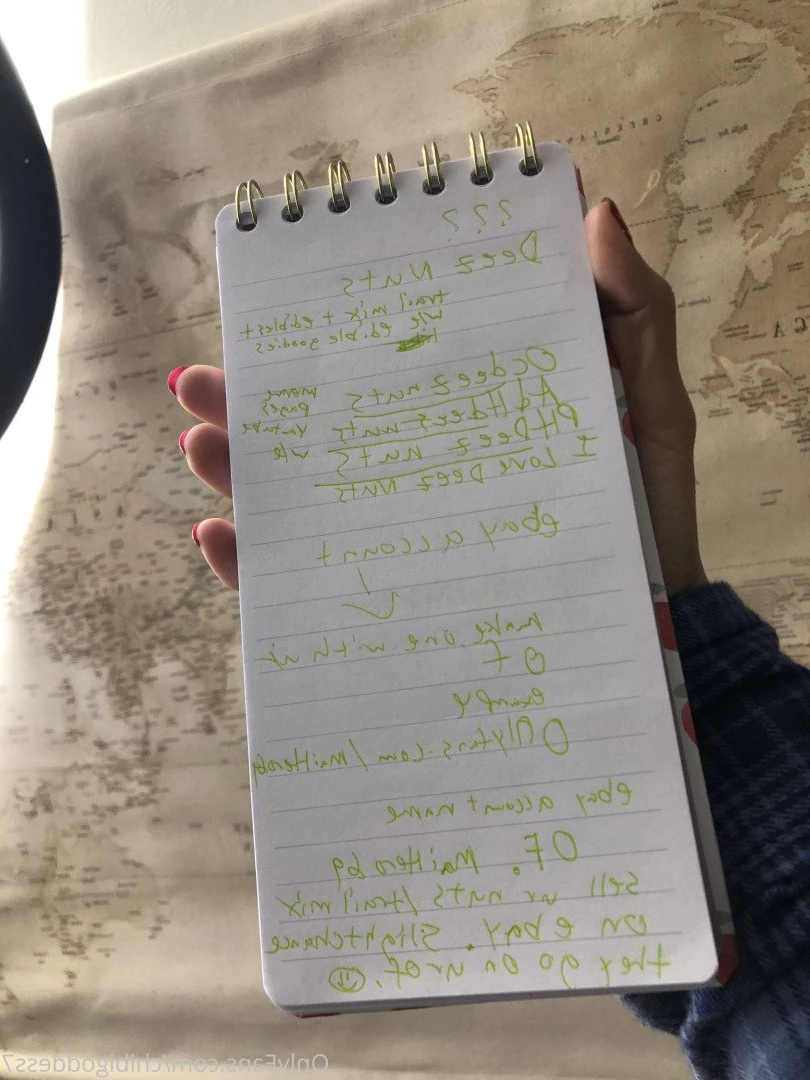 ???
Deez Nuts
trail mix + edibles +
wife edible goodies
Ocdeez nuts
AdHdeez nuts
PHDeez nuts
I Love Deez Nuts
meme
pages
youtube
wife
ebay account
make one with ur
OF
example
Onlyfans.com/MaiHerobg
ebay account name
OF. MaiHerobg
Sell ur nuts/trail mix
on ebay. Slight chance
they go on ur of.
GREENLAND
OnlyFans.com/chibigoddess7